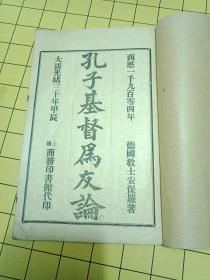 西歷一千九百零四年
德國教士安保羅著
孔子基督爲友論
大淸光緖三十年甲辰
上海
商務印書館代印